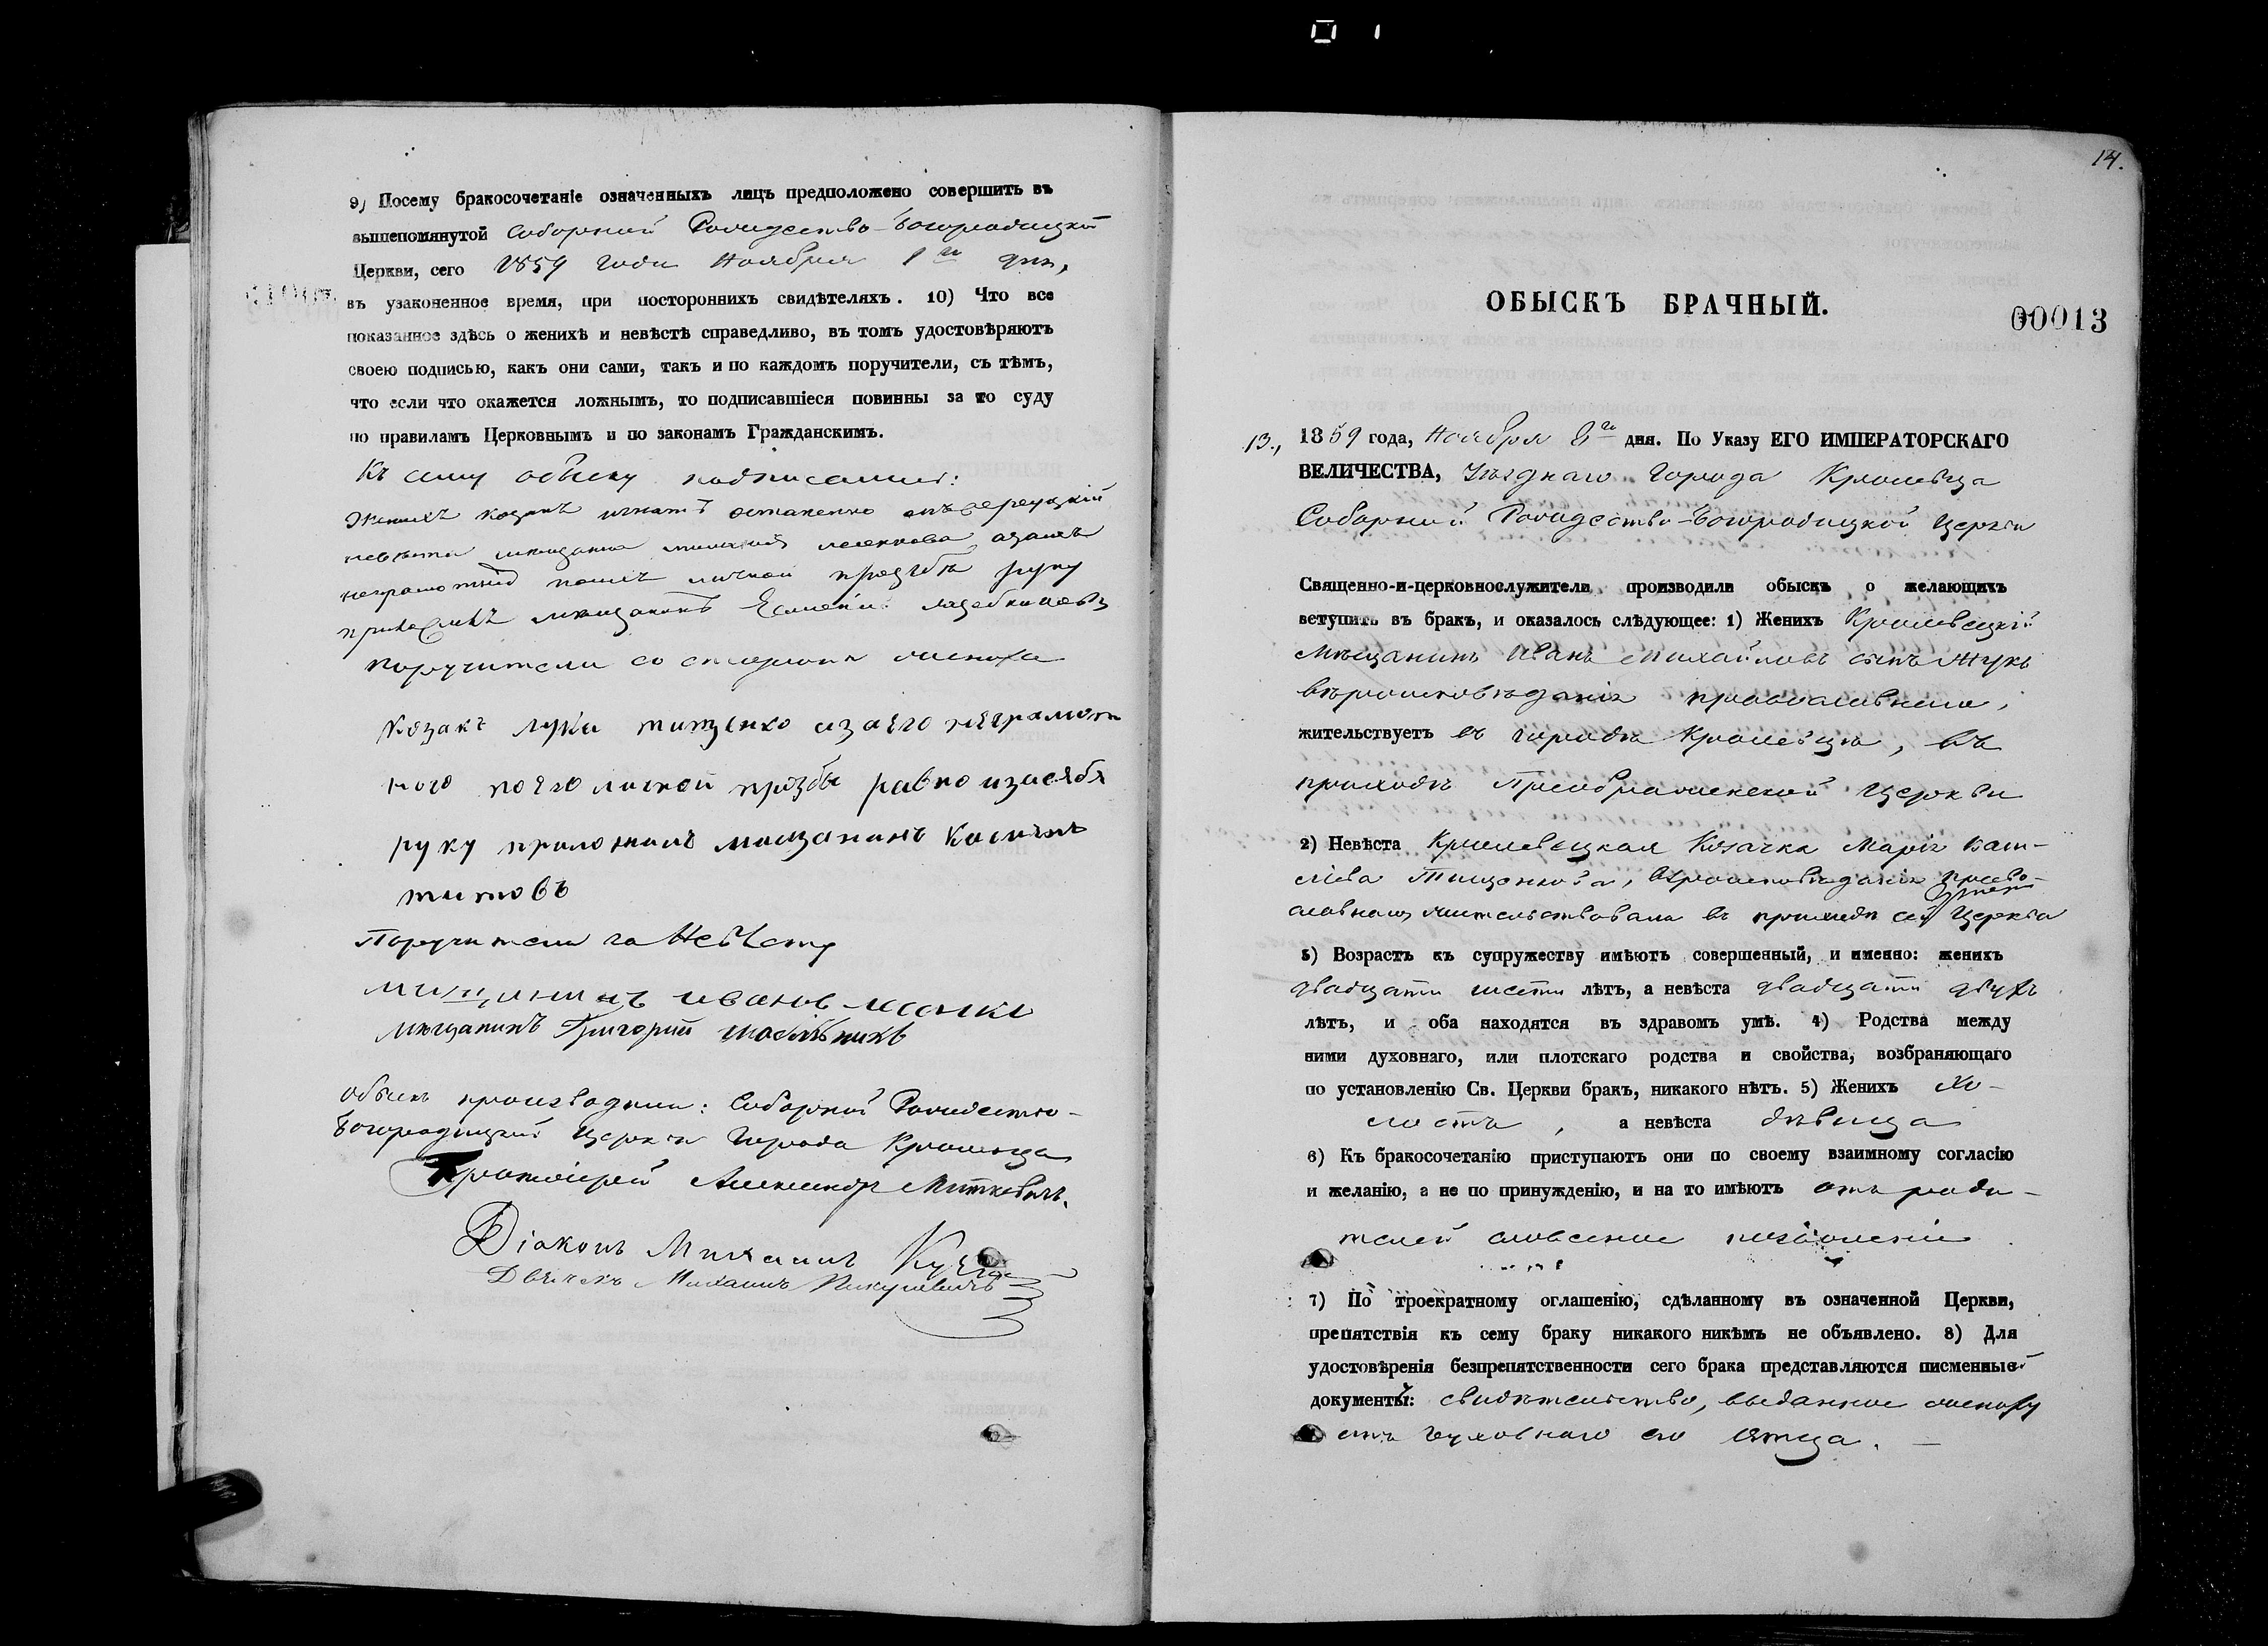 9) Посему бракосочетаніе означенныхъ лицъ предположено совершить въ
вышепомянутой Соборной Рождество-Богородицкой
Церкви, сего 1859 года Ноября дня,
въ узаконенное время, при постороннихъ свидѣтеляхъ. 10) Что все
показанное здѣсь о женихѣ и невѣстѣ справедливо, въ томъ удостовѣряютъ
своею подписью, какъ они сами, такъ и по каждомъ поручители, съ тѣмъ,
что если что окажется ложнымъ, то подписавшіеся повинны за то суду
по правиламъ Церковнымъ и по законамъ Гражданскимъ.
Къ сему обыску подписались:
Женихъ козакъ Игнатъ
невѣста мѣщанка
руку
мѣщанинъ
Поручители со стороны жениха
Козакъ Лука тищенко изаего неграмот
ного поего личной прозбы равно изасебя
руку приложилъ мещанинъ Косма
титовъ
Поручители за Невѣсту
Мѣщанинъ Григорий
Обыскъ производили: Соборной Рождество-
Богородицкой Церкви Города Кролевца
Протоіерей Александръ Миткевичъ.
Діаконъ Михаилъ
Дьячекъ Михаилъ
14.
ОБЫСКЪ БРАЧНЫЙ.
00013
13., 1859 года, Ноября 8го дня. По Указу ЕГО ИМПЕРАТОРСКАГО
ВЕЛИЧЕСТВА, Уѣзднаго Города Кролевца
Соборной Рождество-Богородицкой Церкви
Священно-и-церковнослужители производили обыскъ о желающихъ
вступить въ бракъ, и оказалось слѣдующее: 1) Женихъ Кролевецкій
Мѣщанинъ Иванъ Михайловъ сынъ Жукъ
вѣроисповѣданія православнаго,
жительствуетъ въ городѣ Кролевцѣ, въ
приходѣ Преображенской Церкви
2) Невѣста Кролевецкая Козачка Марія Васи-
ліева Тищенкова, вѣроисповѣданія право-
славнаго, жительствовала въ приходѣ сей Церкви
3) Возрастъ къ супружеству имѣютъ совершенный, и именно: женихъ
двадцати шести лѣтъ, а невѣста двадцати двухъ
лѣтъ, и оба находятся въ здравомъ умѣ. 4) Родства между
ними духовнаго, или плотскаго родства и свойства, возбраняющаго
по установленію Св. Церкви бракъ, никакого нѣтъ. 5) Женихъ хо-
лостъ, а невѣста дѣвица
6) Къ бракосочетанію приступаютъ они по своему взаимному согласію
и желанію, а не по принужденію, и на то имѣютъ отъ роди-
телей словесное позволеніе
7) По троекратному оглашенію, сдѣланному въ означенной Церкви,
препятствія къ сему браку никакого никѣмъ не объявлено. 8) Для
удостовѣренія безпрепятственности сего брака представляются писменный
документъ: свидѣтельство, выданное жениху
отъ духовнаго его Отца. —